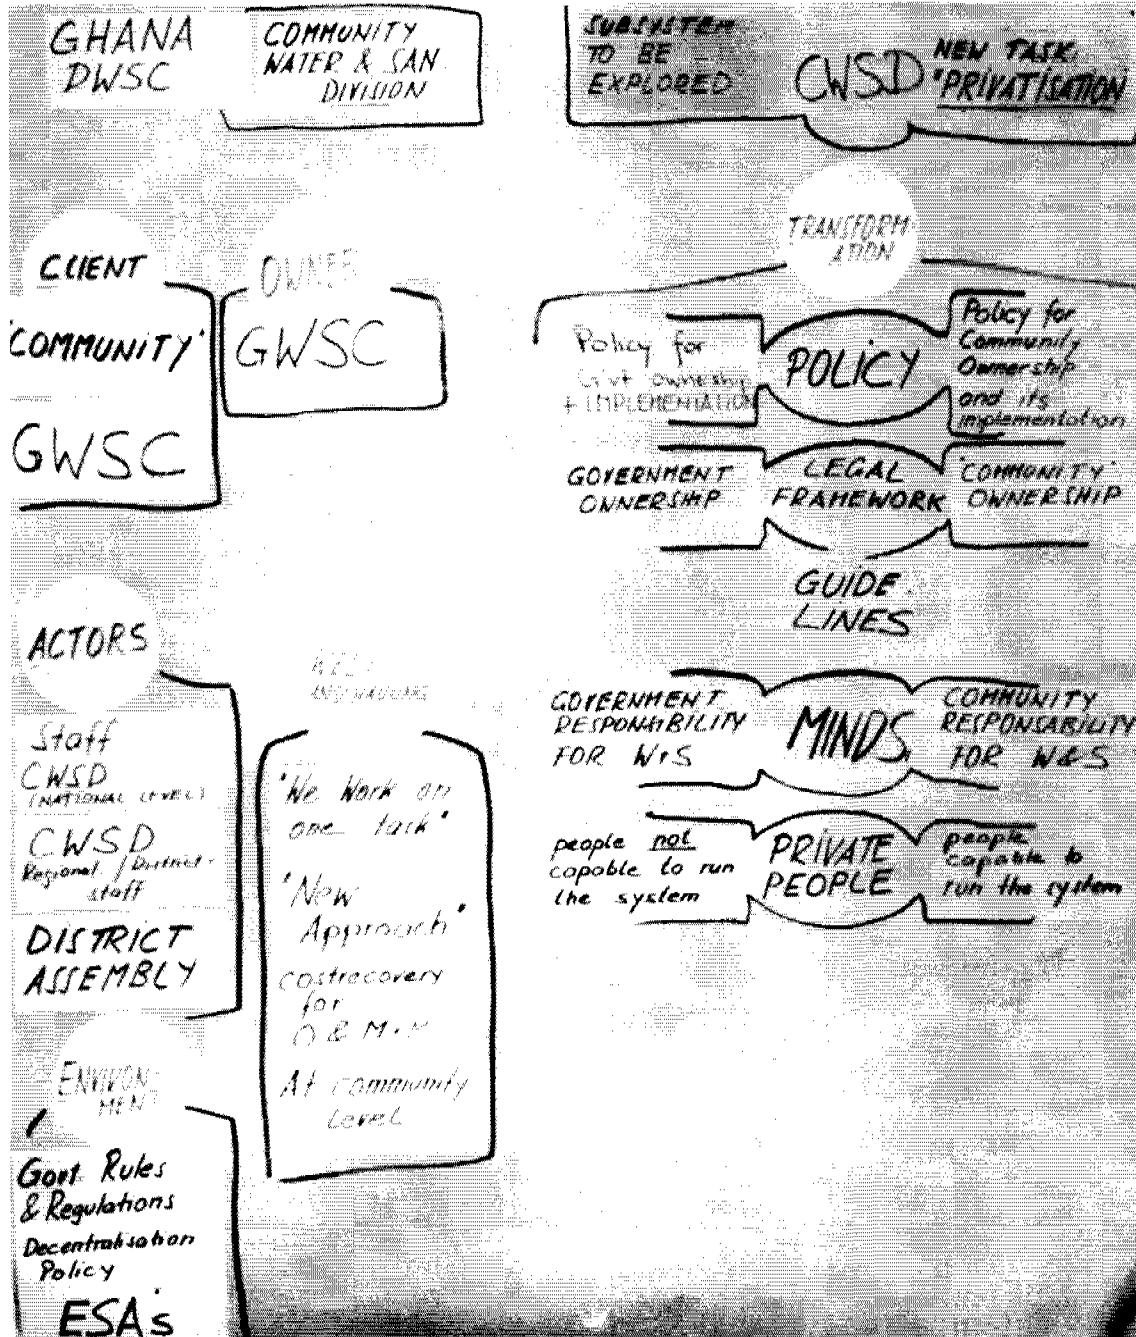 GHANA
DWSC
COMMUNITY
WATER & SAN
DIVISION
SUBSYSTEM
TO BE
EXPLORED
CWSD
NEW TASK:
"PRIVATISATION
CLIENT
'COMMUNITY'
GWSC
OWNER
GWSC
TRANSFORM
ATION
Policy for
Govt ownership
+ IMPLEMENTATION
POLICY
Policy for
Community
Ownership
and its
implementation
GOVERNMENT
OWNERSHIP
LEGAL
FRAMEWORK
'COMMUNITY'
OWNERSHIP
GUIDE
LINES
ACTORS
Staff
CWSD
(NATIONAL LEVEL)
CWSD
Regional / District-
staff
DISTRICT
ASSEMBLY
"We Work on
one task"
"New
Approach"
Costrecovery
for
O & M
At community
Level
GOVERNMENT
RESPONSIBILITY
FOR W+S
MINDS
COMMUNITY
RESPONSABILITY
FOR W&S
people not
capable to run
the system
PRIVATE
PEOPLE
people
capable to
run the system
ENVIRON-
MENT
Govt Rules
& Regulations
Decentralisation
Policy
ESA's